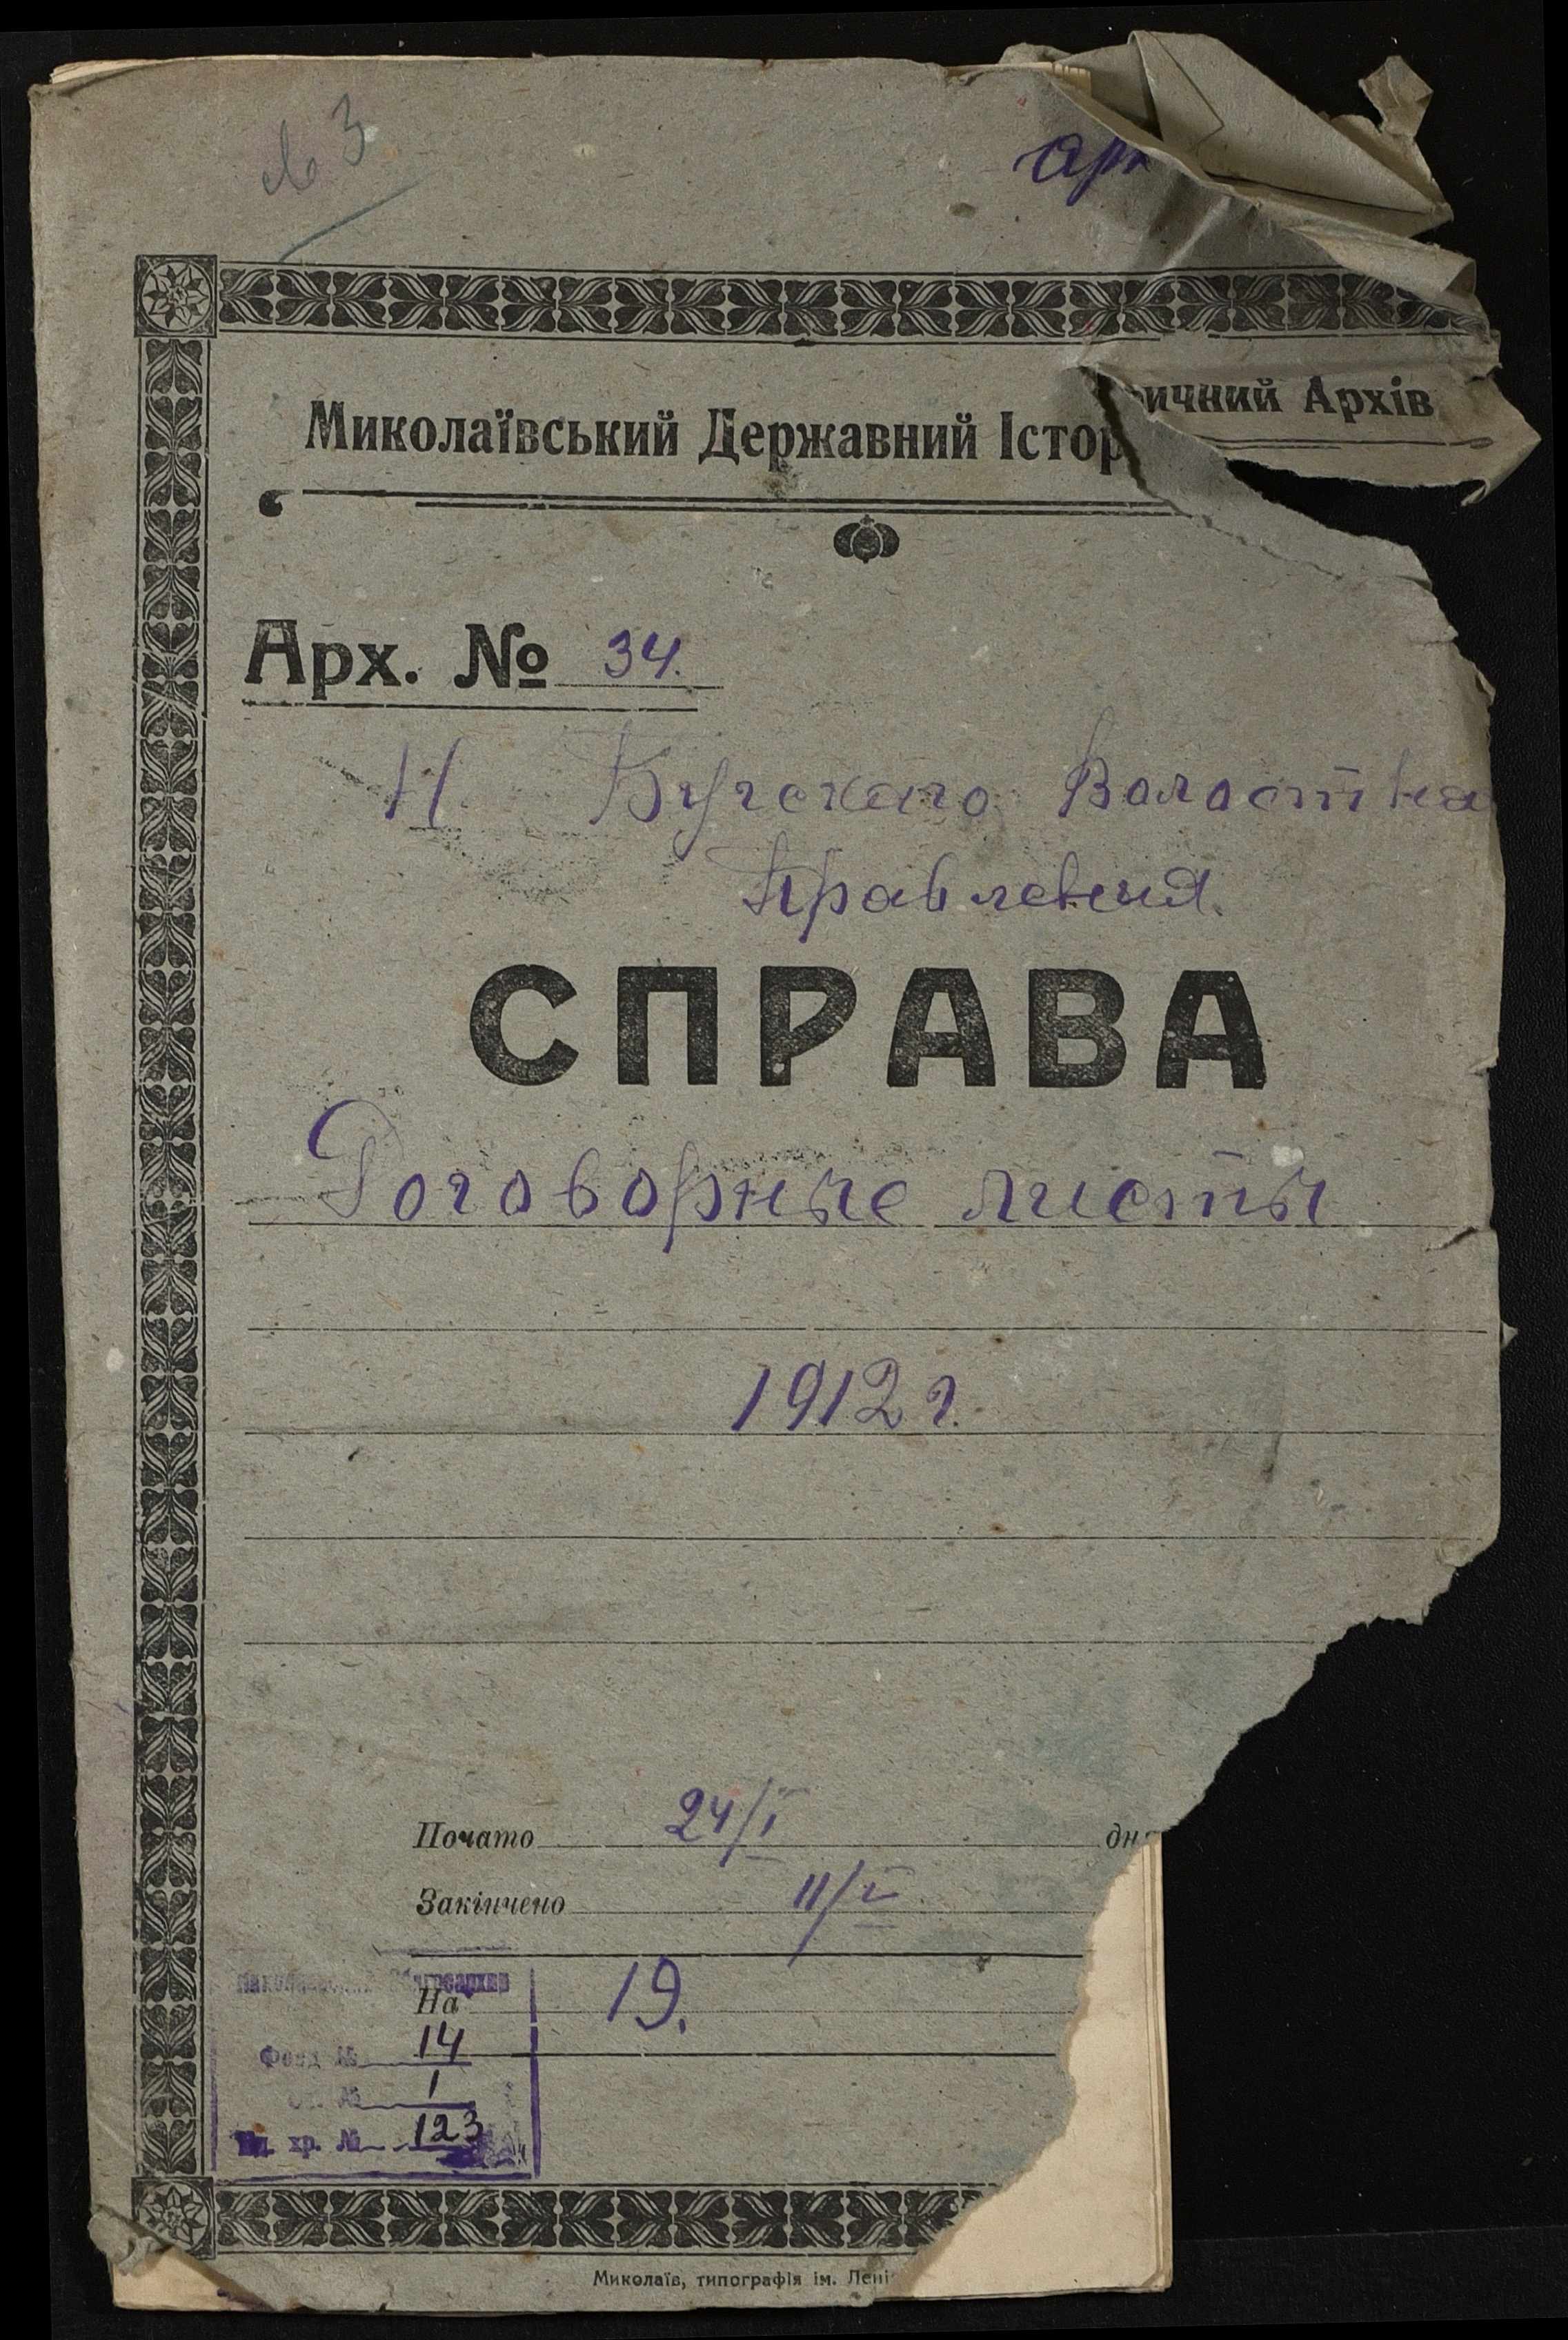 № 3
арх
Миколаївський Державний Історичний Архів
Арх. № 34.
Н. Бугского Волостна
Правления.
СПРАВА
Договорные листы
1912 г.
Почато 24/I дн
Закінчено 11/V
На 19.
Фонд № 14
оп. № 1
Ед. хр. № 123
Миколаїв, типографія ім. Лені